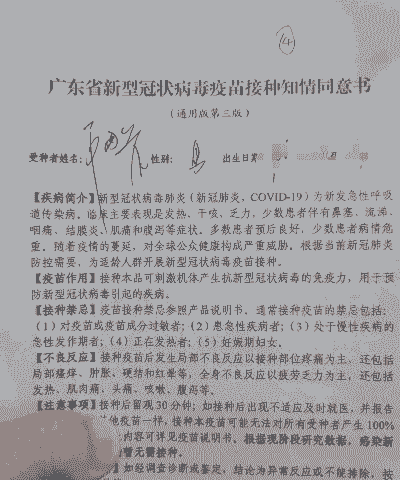 14
广东省新型冠状病毒疫苗接种知情同意书
（通用版第三版）
受种者姓名： 性别： 出生日期
【疾病简介】新型冠状病毒肺炎（新冠肺炎，COVID-19）为新发急性呼吸
道传染病。临床主要表现是发热、干咳、乏力，少数患者伴有鼻塞、流涕、
咽痛、结膜炎、肌痛和腹泻等症状。多数患者预后良好，少数患者病情危
重。随着疫情的蔓延，对全球公众健康构成严重威胁。根据当前新冠肺炎
防控需要，为适龄人群开展新型冠状病毒疫苗接种。
【疫苗作用】接种本品可刺激机体产生抗新型冠状病毒的免疫力，用于预
防新型冠状病毒引起的疾病。
【接种禁忌】疫苗接种禁忌参照产品说明书。通常接种疫苗的禁忌包括：
（1）对疫苗或疫苗成分过敏者；（2）患急性疾病者；（3）处于慢性疾病的
急性发作期者；（4）正在发热者；（5）妊娠期妇女。
【不良反应】接种疫苗后发生局部不良反应以接种部位疼痛为主，还包括
局部瘙痒、肿胀、硬结和红晕等，全身不良反应以疲劳乏力为主，还包括
发热、肌肉痛、头痛、咳嗽、腹泻等。
【注意事项】接种后留观30分钟；如接种后出现不适应及时就医，并报告
他疫苗一样，接种本疫苗可能无法对所有受种者产生100%
内容可详见疫苗说明书。根据现阶段研究数据，感染新
暂无需接种。
如经调查诊断或鉴定，结论为异常反应或不能排除，按